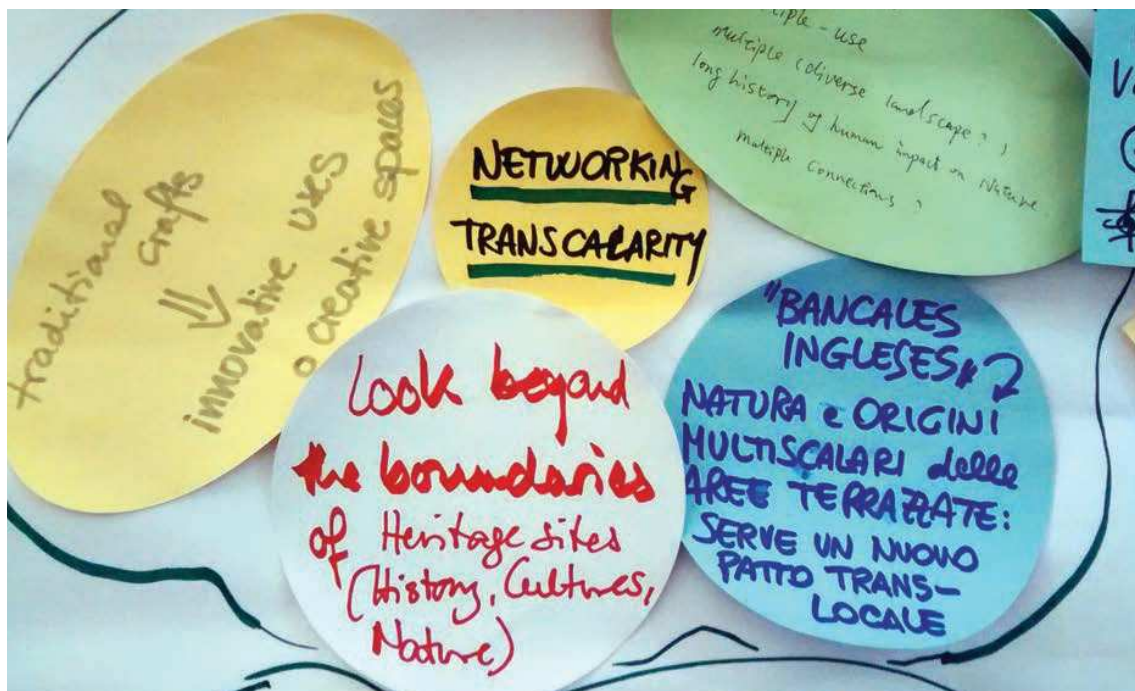 traditional
crafts
⇓
innovative uses
o creative spaces
NETWORKING
TRANSCALARITY
multiple-use
multiple (diverse landscape?)
long history of human impact on Nature
multiple connections?
Look beyond
the boundaries
of Heritage sites
(History, Cultures,
Nature)
"BANCALES
INGLESES"
NATURA e ORIGINI
MULTISCALARI delle
AREE TERRAZZATE:
SERVE UN NUOVO
PATTO TRANS-
LOCALE